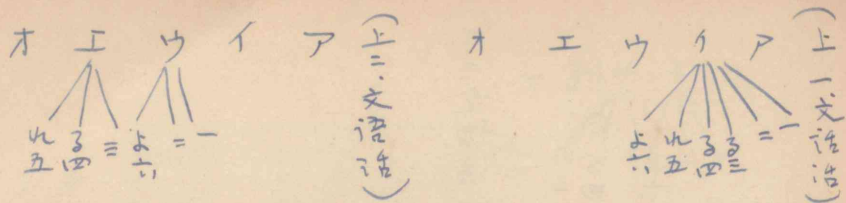 （上一文語活）
ア
イ
ウ
エ
オ
一
二
る三
る四
れ五
よ六
（上二、文語活）
ア
イ
ウ
エ
オ
一
二
よ六
三
る四
れ五